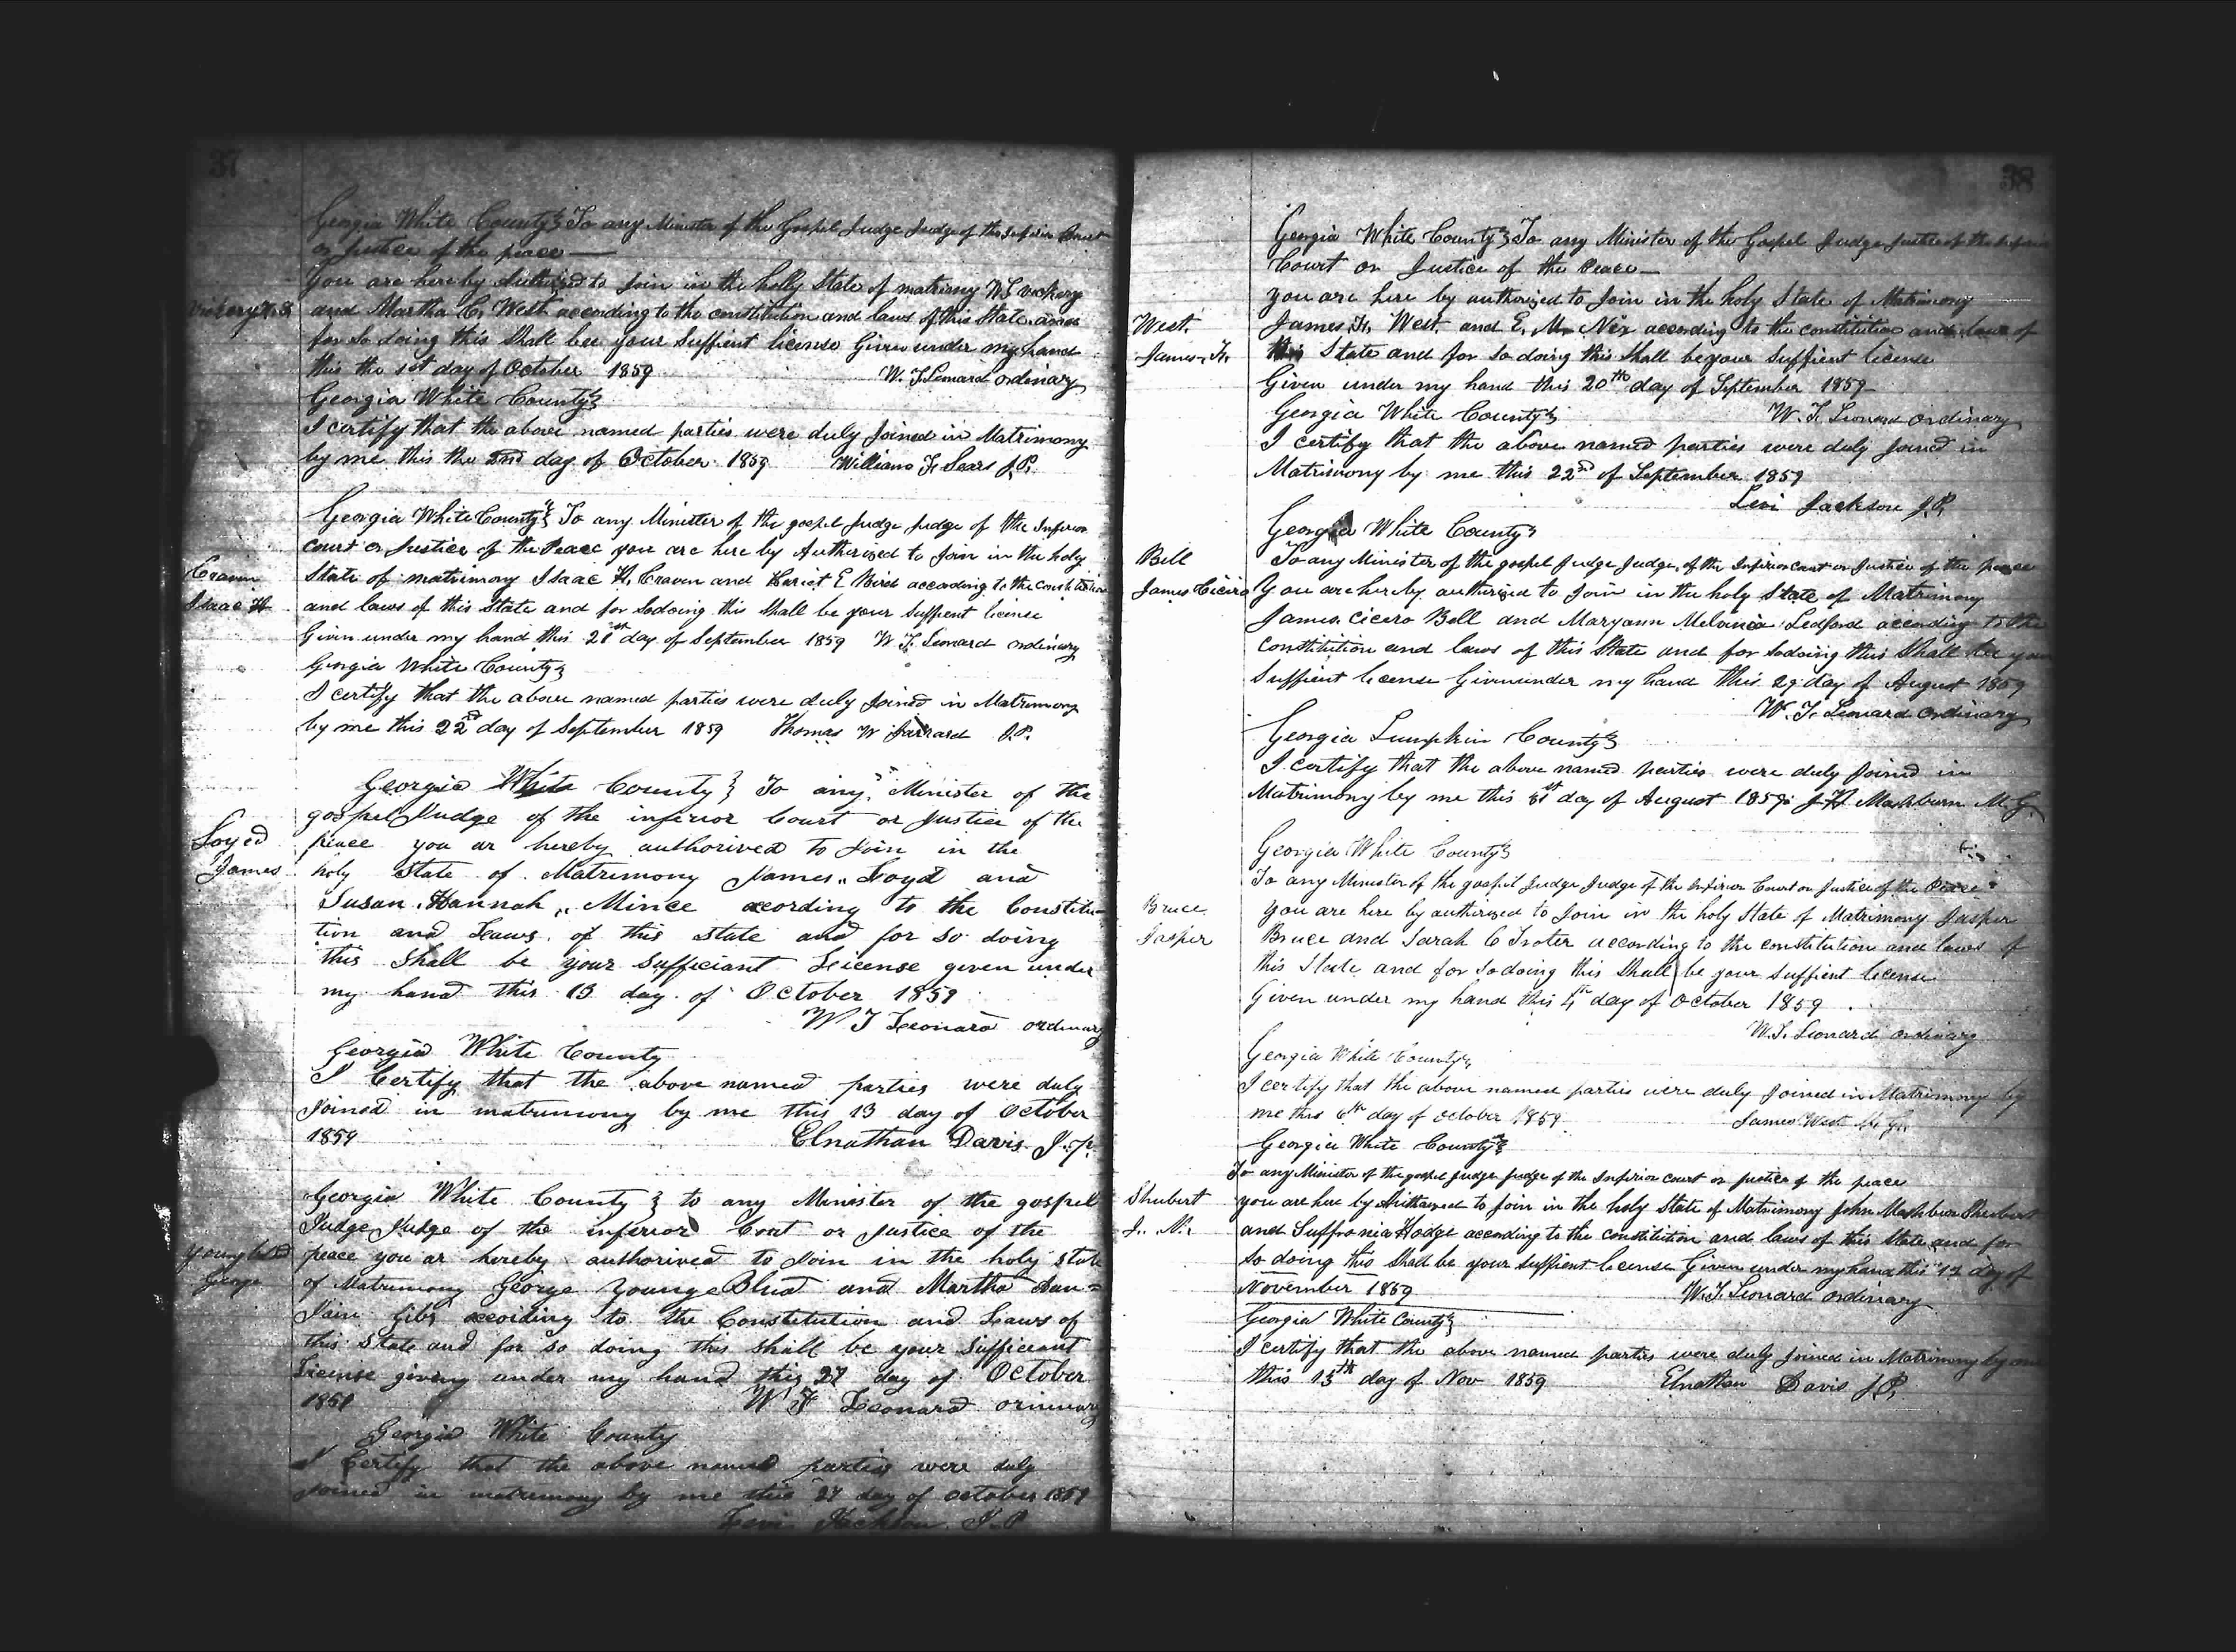 37
Georgia White County } To any Minister of the Gospel Judge Judge of the Inferior Court
or Justice of the peace —
You are hereby Authrized to Join in the holly State of matrimony W S Vickery
Vickery W. S.
and Martha C. West according to the constitution and laws of this State and
for so doing this Shall bee your Suffient license Given under my hand
this the 1st day of October 1859 W. F. Leonard ordinary
Georgia White County }
I certify that the above named parties were duly Joined in Matrimony
by me this the 2nd day of October 1859 William F. Sears J.P.
Georgia White County } To any Minister of the gospel Judge Judge of the Inferior
Court or Justice of the Peace you are here by Authorized to Join in the holy
Craven
Isaac H
State of matrimony Isaac H. Craven and Hariet E Bird according to the Constitution
and laws of this State and for Sodoing this Shall be your suffient license
Given under my hand this 21st day of September 1859 W F. Leonard ordinary
Georgia White County }
I certify that the above named parties were duly Joined in Matrimony
by me this 22nd day of September 1859 Thomas W Jarrard J.P.
Georgia White County } To any Minister of the
gospel Judge of the inferior Court or Justice of the
Loyed
James
peace you ar hereby authorived to Join in the
holy State of Matrimony James Loyd and
Susan Hannah Mince acording to the Constitu-
tion and Laws of this state and for so doing
this Shall be your sufficiant Leicense given under
my hand this 13 day of October 1859
W F Leonard ordinary
Georgia White County
I Certify that the above named parties were duly
Joined in matrimony by me this 13 day of October
1859 Elnathan Davis J.P.
Georgia White County } to any Minister of the gospel
Judge Judge of the inferior Cort or Justice of the
George
peace you ar hereby authorived to Join in the holy state
of Matrimony George YoungeBlud and Martha
Gibs acoiding to the Constitution and Laws of
this State and for so doing this shall be your Sufficiant
Licinse giveng under my hand this 27 day of October
1859 W F Leonard
Georgia White County
I Certify that the above named parties were duly
Joined in matrimony by me this 27 day of October 1859
Levi Jackson J.P
38
Georgia White County } To any Minister of the Gospel Judge Justice of the Inferior
Court or Justice of the Peace —
you are here by authorized to Join in the holy State of Matrimony
West.
James. H.
James. H. West. and E. M. Nix according to the constitution and laws of
this State and for so doing this Shall be your Suffient license
Given under my hand this 20th day of September 1859
Georgia White County } W. F. Leonard ordinary
I certify that the above named parties were duly Joined in
Matrimony by me this 22nd of September 1859
Levi Jackson J.P.
Georgia White County }
Bell
James Ciciro
To any Minister of the gospel Judge Judge of the Inferior Court or Justice of the peace
You are hereby authorized to Join in the holy State of Matrimony
James Cicero Bell and Maryann Melvinia Ledford according to the
Constitution and laws of this State and for Sodoing this Shall bee your
Suffient license Given under my hand this 29 day of August 1859
W. F. Leonard ordinary
Georgia Lumpkin County }
I certify that the above named parties were duly Joined in
Matrimony by me this 31st day of August 1859 J H Mashburn M G
Georgia White County }
To any Minister of the gospel Judge Judge of the Inferior Court or Justice of the Peace
Bruce
Jasper
you are here by authorized to Join in the holy State of Matrimony Jasper
Bruce and Sarah C Troter according to the constitution and laws of
this State and for Sodoing this Shall be your Suffient license
Given under my hand this 4th day of October 1859
W. F. Leonard ordinary
Georgia White County
I certify that the above named parties were duly Joined in Matrimony by
me this 6th day of October 1859 James West
Georgia White County }
To any Minister of the gospel Judge Judge of the Inferior Court or Justice of the peace
Shubert
J. N.
you are here by Authorized to Join in the holy State of Matrimony John Mashburn Shubert
and Suffronia Hodge according to the constitution and laws of this State and for
So doing this Shall be your Suffient license Given under my hand this 12 day of
November 1859 W. F. Leonard ordinary
Georgia White County }
I certify that the above named parties were duly Joined in Matrimony by me
this 13th day of Nov 1859 Elnathan Davis J.P.